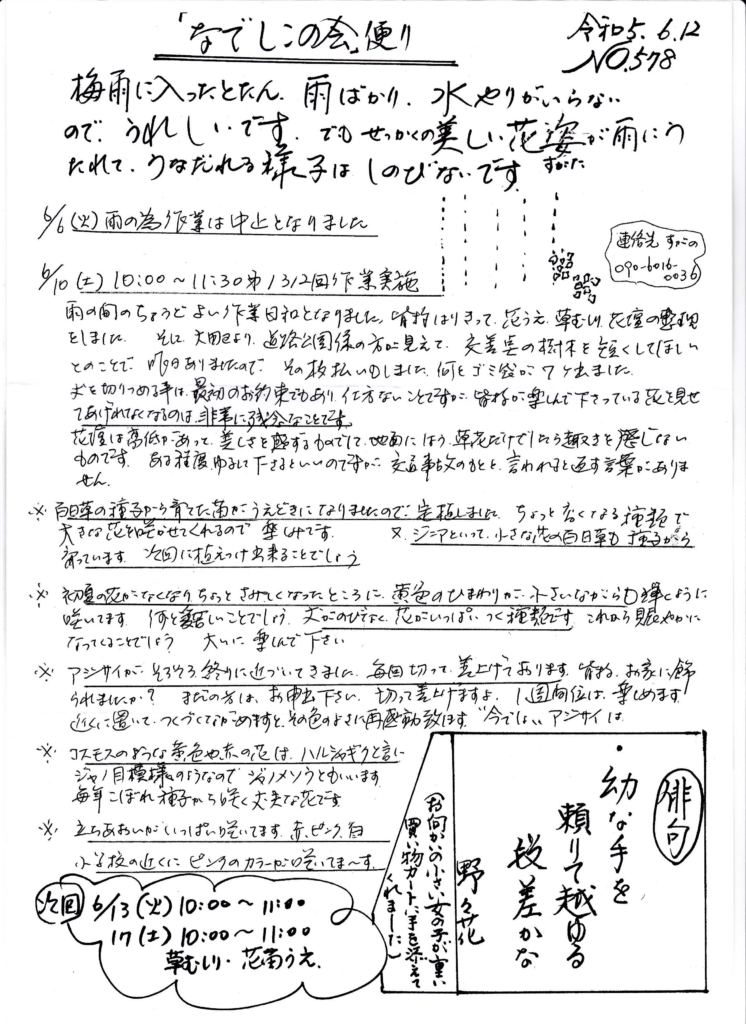 「なでしこの会」便り
令和5.6.12
NO.578
梅雨に入ったとたん、雨ばかり、水やりがいらない
ので、うれしいです。でもせっかくの美しい花姿が雨にう
すがた
たれて、うなだれる様子はしのびないです
6/6(火)雨の為作業は中止となりました
連絡先
090-6016-
0036
6/10(土)10:00~11:30第1312回作業実施
雨の間のちょうどよい作業日和となりました。皆様はりきって、花うえ、草むしり、花壇の整理
をしました。そこに、大田区より、道路公園係の方が見えて、交差点の樹木を短くしてほしい
とのことで、昨日ありましたので、その枝払いもしました。何とゴミ袋が7ヶ出ました。
丈を切りつめる事は、最初のお約束でもあり、仕方ないことですが、皆様が楽しんで下さっている花を見せ
てあげれなくなるのは、非常に残念なことです。
花壇は高低があって、美しさを感ずるものでして、地面にはう、草花だけでしたら趣きを感じない
ものです。ある程度、ゆるして下さるといいのですが、交通事故のもとと、言われると返す言葉がありま
せん。
※百日草の種子から育てた苗がうえどきになりましたので、定植しました。ちょっと高くなる種類で
大きな花を咲かせてくれるので楽しみです。 又、ジニアといって、小さな花の百日草も種子から
育っています。次回に植えつけ出来ることでしょう
※初夏の花がなくなり、ちょっとさみしくなったところに、黄色のひまわりが、小さいながらも輝くように
咲いてます。何と美しいことでしょう。丈がのびなく、花がいっぱいつく種類です これから賑やかに
なってくることでしょう 大いに楽しんで下さい
※アジサイが、そろそろ終りに近づいてきました。毎回切って、差上げております。皆様、お家に飾
られましたか? まだの方は、お申出下さい。切って差上げますよ。1週間位は、楽しめます。
近くに置いて、つくづくながめますと、その色のよさに再感動致します "今でしょ、アジサイは
※コスモスのような黄色や赤の花は、ハルシャギクと言い
ジャノ目模様のようなのでジャノメソウともいいます
毎年こぼれ種子から咲く丈夫な花です
※立ちあおいがいっぱい咲いてます。赤、ピンク、白
小学校の近くにピンクのカラーが咲いてま~す。
次回
6/13(火)10:00~11:00
17(土)10:00~11:00
草むしり・花苗うえ
俳句
・幼な手を
頼りて越ゆる
段差かな
野々花
(お向かいの小さい女の子が、重い
買い物カートに手を添えて
くれました)